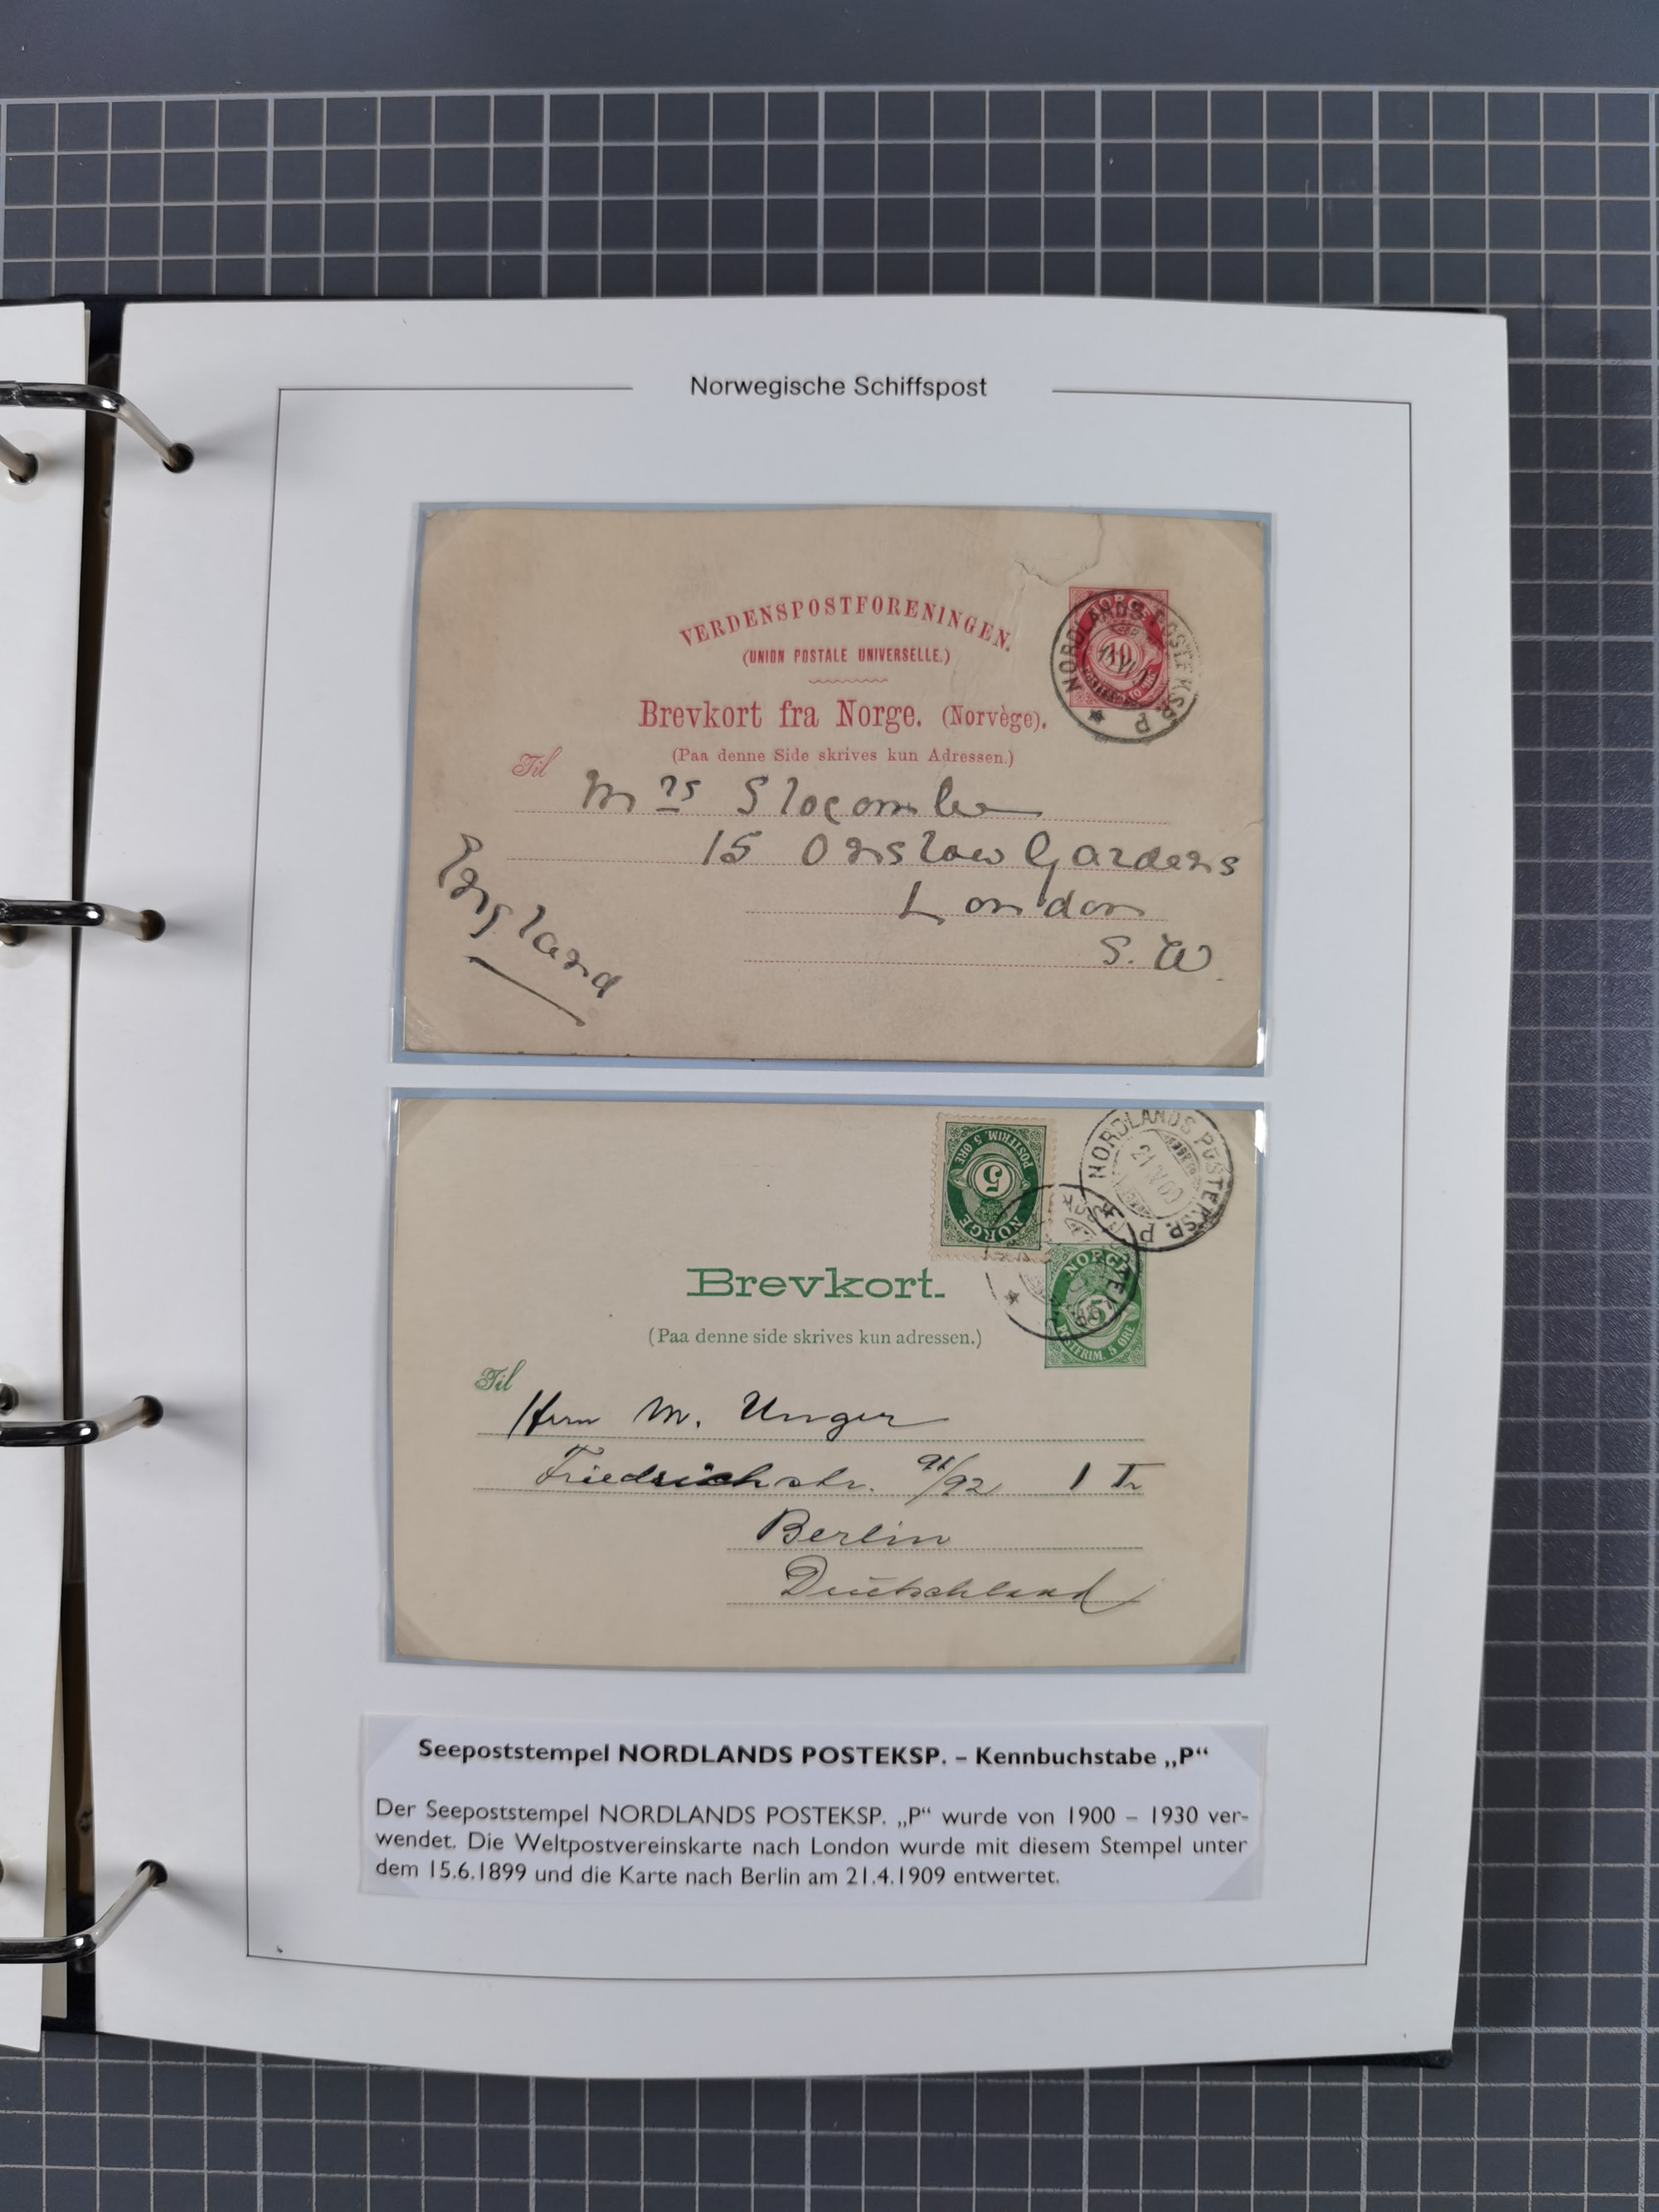 Norwegische Schiffspost
VERDENSPOSTFORENINGEN.
(UNION POSTALE UNIVERSELLE.)
Brevkort fra Norge. (Norvège).
(Paa denne Side skrives kun Adressen.)
NORGE
10
NORDLANDS POSTEKSP. P
Til
Mrs Slocombe
15 Onslow Gardens
London
S. W.
England
NORGE
5
POSTFRIM. 5 ØRE
NORDLANDS POSTEKSP. P
NORGE
5
POSTFRIM. 5 ØRE
Brevkort.
(Paa denne side skrives kun adressen.)
Til
Herrn M. Unger
Friedrichstr. 91/92 1 Tr
Berlin
Deutschland
Seepoststempel NORDLANDS POSTEKSP. – Kennbuchstabe „P“
Der Seepoststempel NORDLANDS POSTEKSP. „P“ wurde von 1900 – 1930 ver-
wendet. Die Weltpostvereinskarte nach London wurde mit diesem Stempel unter
dem 15.6.1899 und die Karte nach Berlin am 21.4.1909 entwertet.